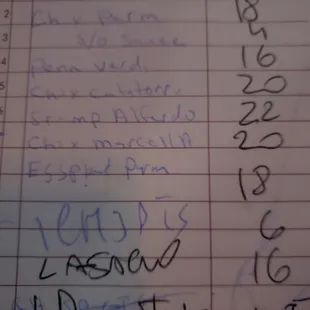 2 Chix Parm 18
3 S/O Sauce 4
4 Penn Verdi 16
5 Chix cattatore 20
Srimp Alfredo 22
Chix marcella 20
Eggplant Parm 18
6
LASAGNO 16